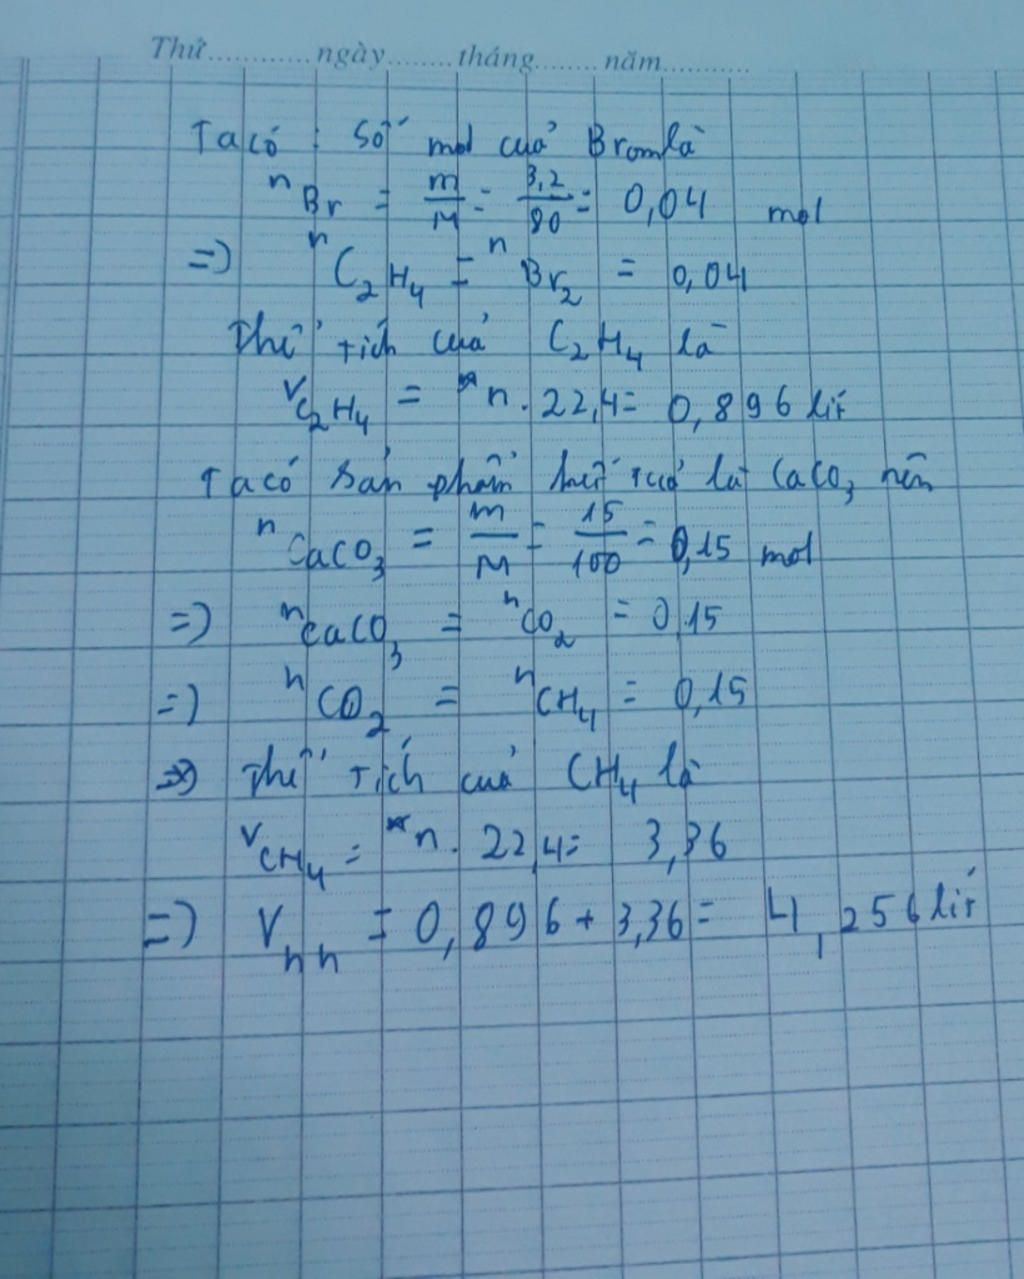 Thứ............ngày........tháng........năm...........
Ta có : Số mol của Brom là
nBr = m/M = 3,2/80 = 0,04 mol
=) nC2H4 = nBr2 = 0,04
Thể tích của C2H4 là
VC2H4 = n . 22,4 = 0,896 lít
Ta có sản phẩm kết tủa là CaCO3 nên
nCaCO3 = m/M = 15/100 = 0,15 mol
=) nCaCO3 = nCO2 = 0,15
=) nCO2 = nCH4 = 0,15
=) Thể tích của CH4 là
VCH4 = n . 22,4 = 3,36
=) Vhh = 0,896 + 3,36 = 4,256 lít